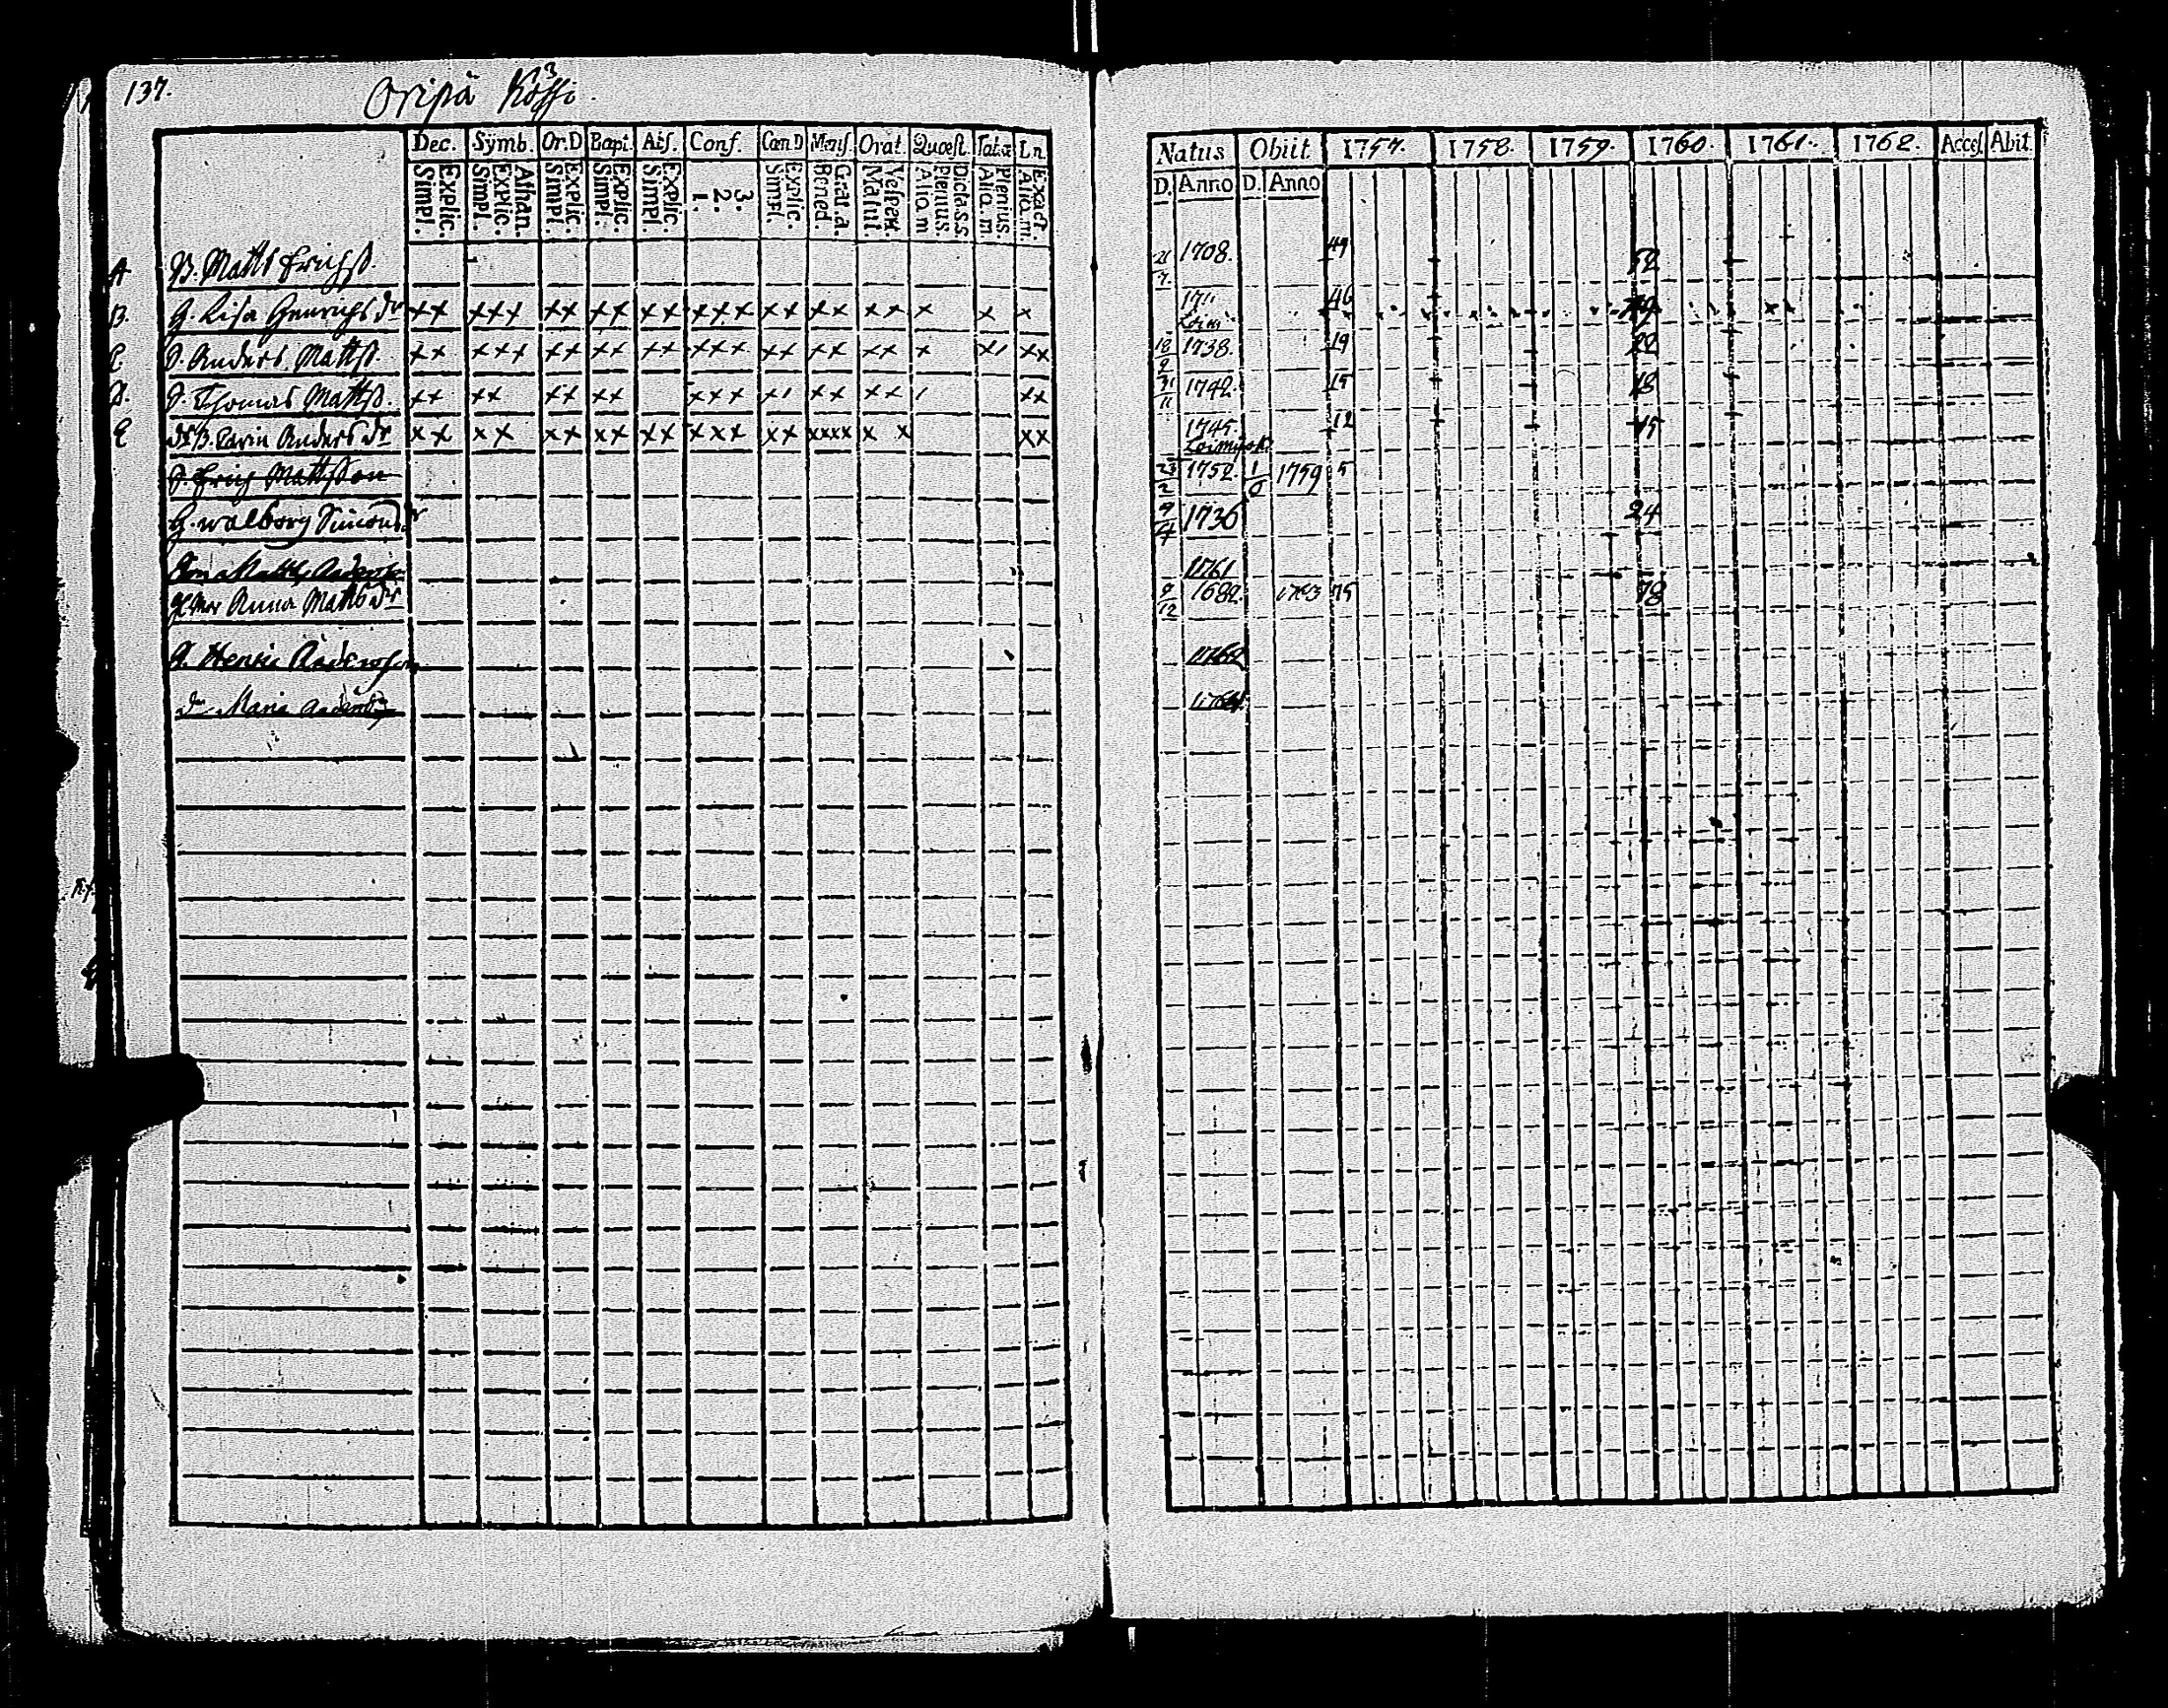 137.
Oripä
3
Dec. Symb. Or.D Bapt. Abs. Conf. Cœn.D Mens. Orat. Quæst. Tabæ Ln.
Explic. Simpl. Athan. Explic. Simpl. Explic. Simpl. Explic. Simpl. Explic. Simpl. 3. 2. 1. Explic. Simpl. Grat.a. Bened. Vesper. Matut. Dicta.s.s. Plenius. Aliq.m Plenius. Aliq.m Exact. Aliq.m.
Natus Obiit. 1757. 1758. 1759. 1760. 1761. 1762. Acces. Abit.
D. Anno D. Anno
A B. Matts Erichss. 21/7. 1708. 49 52
B. H. Lisa Henrichs dr xx xxx xx xx xx xxx xx xx xx x x x 1711 46 49
C S. Anders Mattss. xx xxx xx xx xx xxx xx xx xx x x/ xx 18/9 1738. 19 22
D. S. Thomas Mattss. xx xx xx xx xxx x/ xx xx / xx 31/11 1742. 15 18
E Carin Anders dr xx xx xx xx xx xxx xx xxxx x x xx 1745. 12 15
S. Erich Mattsson 23/2 1752. 1/6 1759 5
H. Walborg Simons dr 9/4 1736 24
Son Matts Andersson 1761
Anna Matts dr 9/12 1682. 1763 75 78
S. Henric Andersson 1762
dr Maria Anders dr 1764